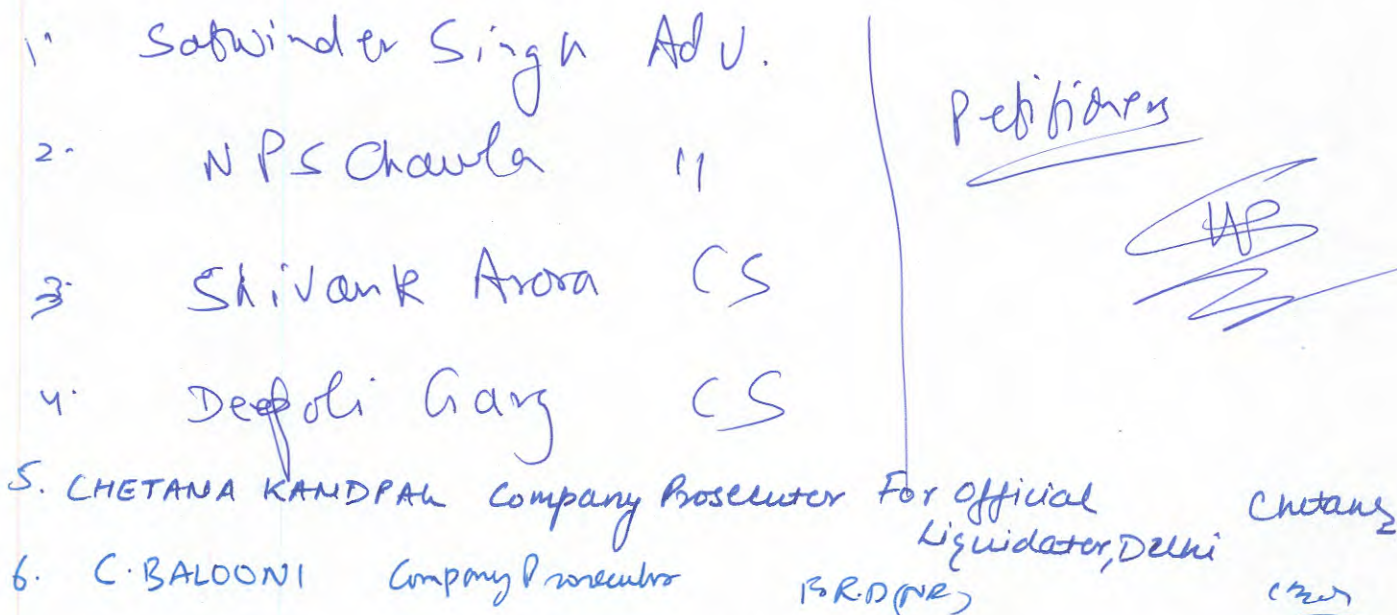 1. Satwinder Singh Adv.
Petitioners
2. N P S Chawla "
3. Shivank Arora CS
4. Deepali Garg CS
5. CHETANA KANDPAL Company Prosecutor For Official Liquidator, Delhi Chetana
6. C. BALOONI Company Prosecutor RD(NR)